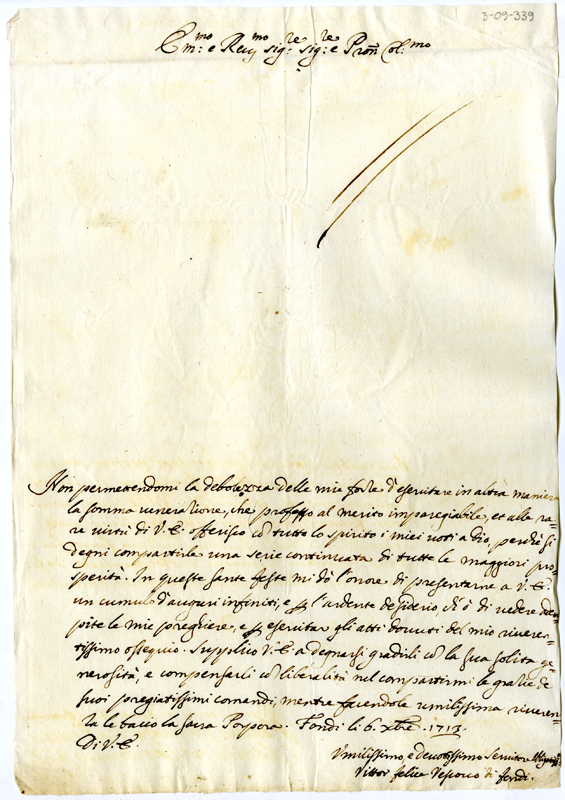 3-09-339
Em:mo e Reu:mo Sig:re Sig:re e Pron Col:mo
Non permettendomi la debolezza delle mie forze d'esercitare in altra maniera
la somma uenerazione, che professo al merito impareggiabile, et alle ra=
re uirtù di V.E. offerisco cō tutto lo spirito i miei uoti a Dio, perche si
degni compartirle una serie continuata di tutte le maggiori pro=
sperità. In queste sante feste mi dò l'onore di presentarne a V.E.
un cumulo d'auguri infiniti, e l'ardente desiderio di uedere
le mie preghiere, e esercitar gli atti douuti del mio riueren=
tissimo ossequio. Supplico V.E. a degnarsi gradirli cō la sua solita ge=
nerosità, e compensarli cō liberalità nel compartirmi le grazie de
suoi pregiatissimi comandi, mentre facendole umilissima riueren=
za le bacio la sacra Porpora. Fondi li 6. Xbre. 1713.
Di V.E.
Vmilissimo, e Deuotissimo Seruitore
Vittor Felice Vescouo di Fondi.